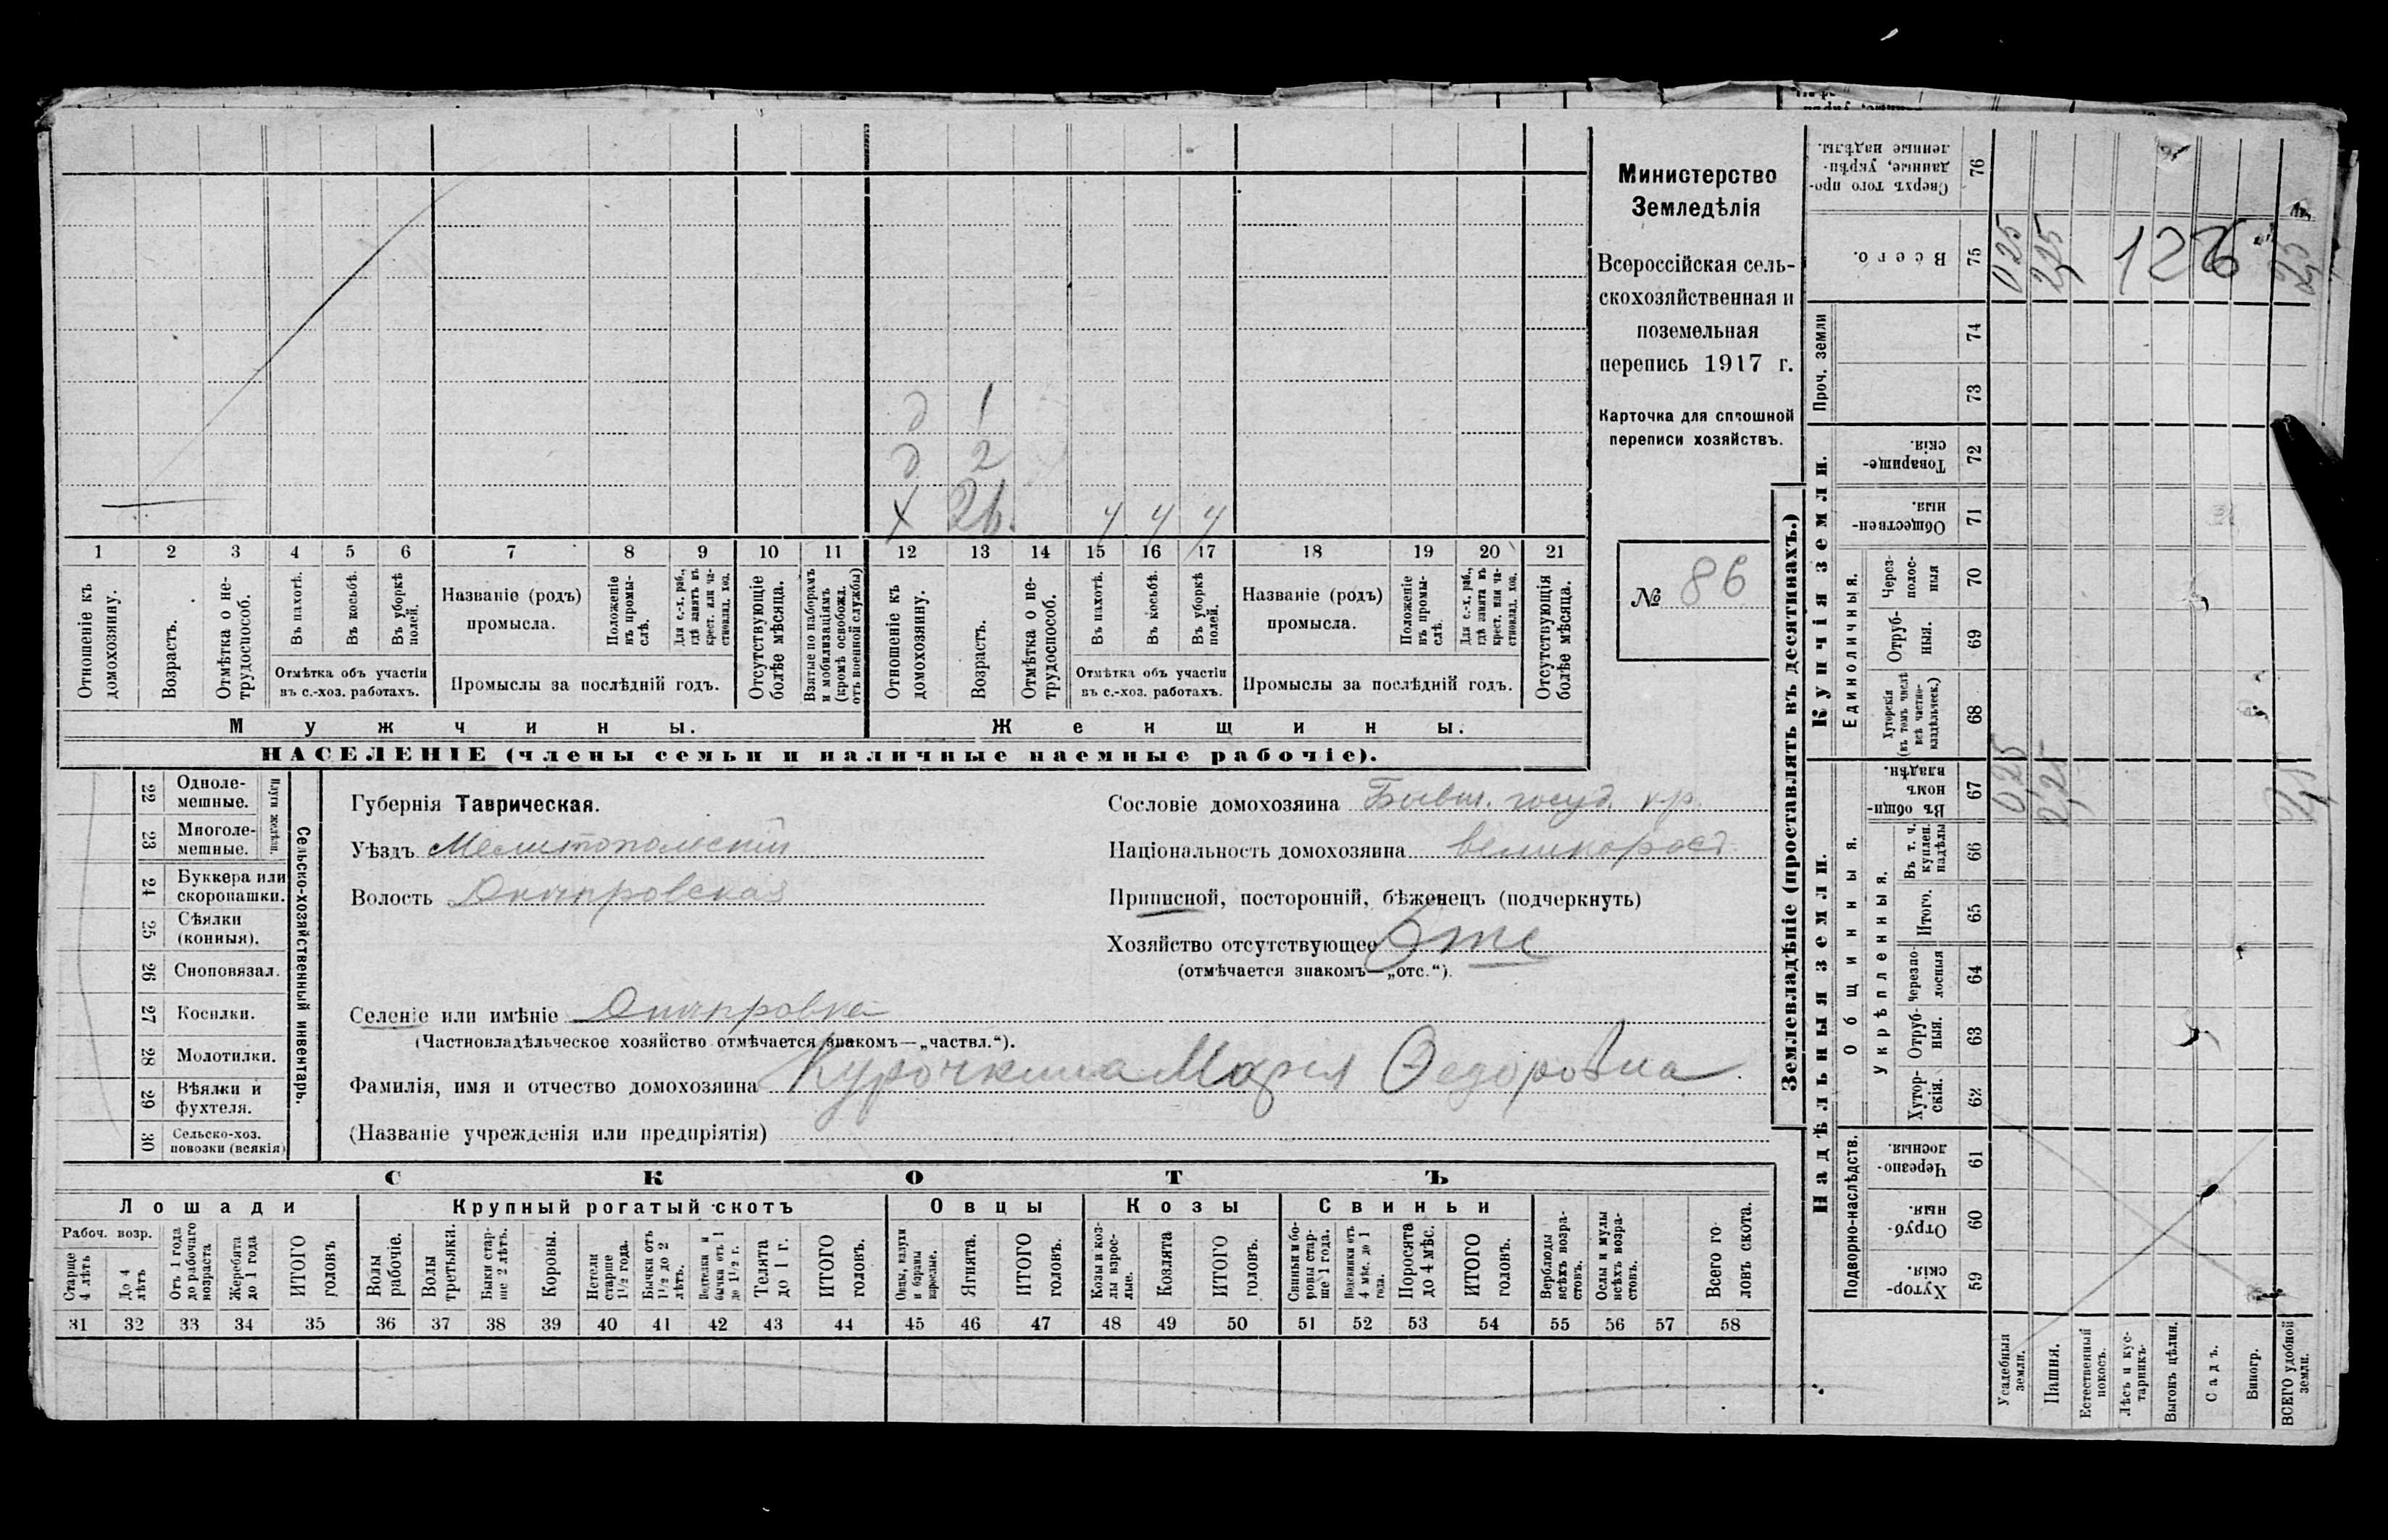 Министерство
Земледѣлія
Всероссійская сель-
скохозяйственная и
поземельная
перепись 1917 г.
Карточка для сплошной
переписи хозяйствъ.
№ 86
д 1
д 2
х 26.
ч ч ч
1 2 3 4 5 6 7 8 9 10 11 12 13 14 15 16 17 18 19 20 21
Отношеніе къ домохозяину.
Возрастъ.
Отмѣтка о не-трудоспособ.
Въ пахотѣ.
Въ косьбѣ.
Въ уборкѣ полей.
Отмѣтка объ участіи
въ с.-хоз. работахъ.
Названіе (родъ)
промысла.
Положеніе въ промы-слѣ.
Для с.-х. раб., гдѣ занятъ въ крест. или ча-стновлад. хоз.
Промыслы за послѣдній годъ.
Отсутствующіе болѣе мѣсяца.
Взятые по наборамъ и мобилизаціямъ (кромѣ освобожд. отъ военной службы)
Отношеніе къ домохозяину.
Возрастъ.
Отмѣтка о не-трудоспособ.
Въ пахотѣ.
Въ косьбѣ.
Въ уборкѣ полей.
Отмѣтка объ участіи
въ с.-хоз. работахъ.
Названіе (родъ)
промысла.
Положеніе въ промы-слѣ.
Для с.-х. раб., гдѣ занята въ крест. или ча-стновлад. хоз.
Промыслы за послѣдній годъ.
Отсутствующія болѣе мѣсяца.
Мужчины.
Женщины.
НАСЕЛЕНІЕ (члены семьи и наличные наемные рабочіе).
22 Одноле-мешные.
23 Многоле-мешные.
Плуги желѣзн.
24 Буккера или скоропашки.
25 Сѣялки (конныя).
26 Сноповязал.
27 Косилки.
28 Молотилки.
29 Вѣялки и фухтеля.
30 Сельско-хоз. повозки (всякія)
Сельско-хозяйственный инвентарь.
Губернія Таврическая.
Уѣздъ Мелитопольскій
Волость Днѣпровская
Сословіе домохозяина Бывш. госуд. кр.
Національность домохозяина великоросс.
Приписной, посторонній, бѣженецъ (подчеркнуть)
Хозяйство отсутствующее Отс
(отмѣчается знакомъ—„отс.“).
Селеніе или имѣніе Днѣпровка
(Частновладѣльческое хозяйство отмѣчается знакомъ—„частвл.“).
Фамилія, имя и отчество домохозяина Курочкина Марія Ѳедоровна.
(Названіе учрежденія или предпріятія)
СКОТЪ
Лошади
Крупный рогатый скотъ
Овцы
Козы
Свиньи
Рабоч. возр.
Старше 4 лѣтъ
До 4 лѣтъ
Отъ 1 года до рабочаго возраста
Жеребята до 1 года
ИТОГО головъ
Волы рабочіе.
Волы третьяки.
Быки стар-ше 2 лѣтъ.
Коровы.
Нетели старше 1½ года.
Бычки отъ 1½ до 2 лѣтъ.
Подтелки и бычки отъ 1 до 1½ г.
Телята до 1 г.
ИТОГО головъ.
Овцы, валухи и бараны взрослые.
Ягнята.
ИТОГО головъ.
Козы и коз-лы взрос-лые.
Козлята
ИТОГО головъ.
Свиньи и бо-ровы стар-ше 1 года.
Подсвинки отъ 4 мѣс. до 1 года.
Поросята до 4 мѣс.
ИТОГО головъ.
Верблюды всѣхъ возра-стовъ.
Ослы и мулы всѣхъ возра-стовъ.
Всего го ловъ скота.
31 32 33 34 35 36 37 38 39 40 41 42 43 44 45 46 47 48 49 50 51 52 53 54 55 56 57 58
Землевладѣніе (проставлять въ десятинахъ.)
Надѣльныя земли.
Купчія земли.
Проч. земли
Подворно-наслѣдств.
Общинныя.
Укрѣпленныя.
Единоличныя.
76 Сверхъ того про-данные, укрѣп-ленные надѣлы.
75 Всего. 0 25 2,25 25
122 6
74
73
72 Товарище-скія.
71 Обществен-ныя.
70 Через-полос-ныя
69 Отруб-ныя.
68 Хуторскія (въ томъ числѣ всѣ частно-владѣльческ.)
67 Въ общин-номъ владѣн. 0 25 2,25
66 Въ т. ч. куплен. надѣлы
65 Итого.
64 Черезпо-лосныя
63 Отруб-ныя.
62 Хутор-скія.
61 Черезпо-лосныя.
60 Отруб-ныя.
59 Хутор-скія.
Усадебныя земли.
Пашня.
Естественный покосъ.
Лѣсъ и кус-тарникъ.
Выгонъ цѣлин.
Садъ.
Виногр.
ВСЕГО удобной земли.